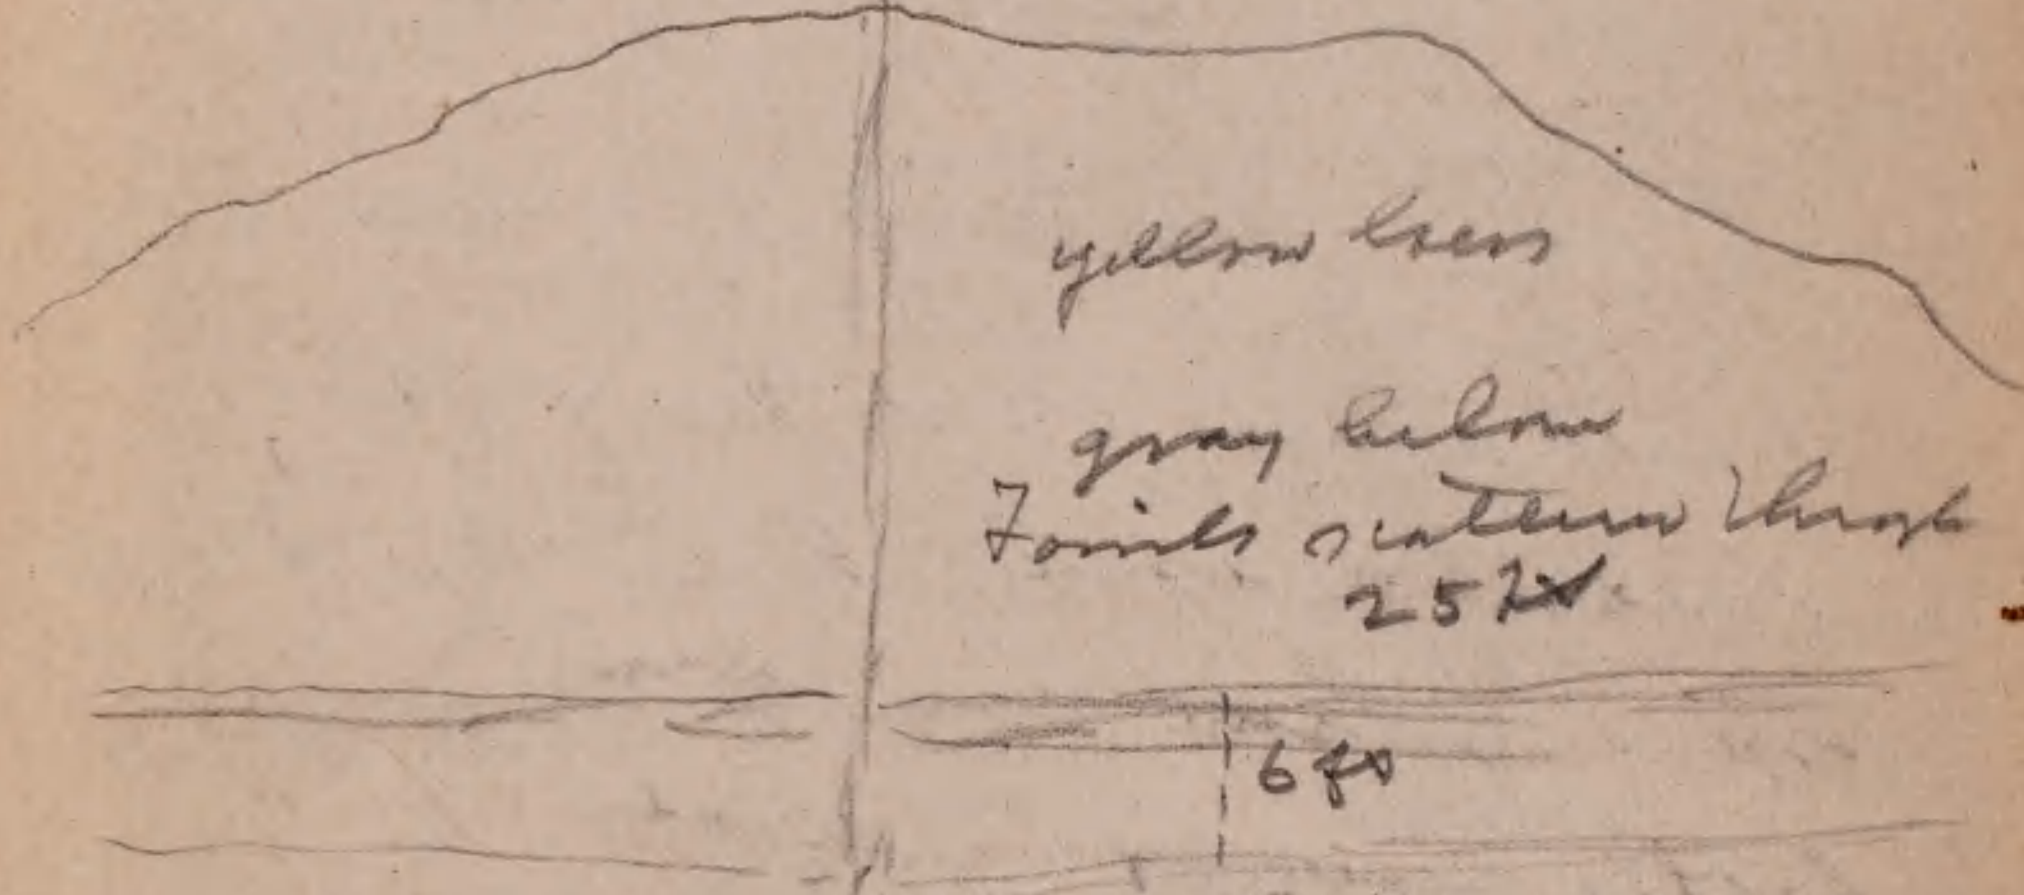 yellow loess
gray below
Fossils scattered through
25 ft
6 ft